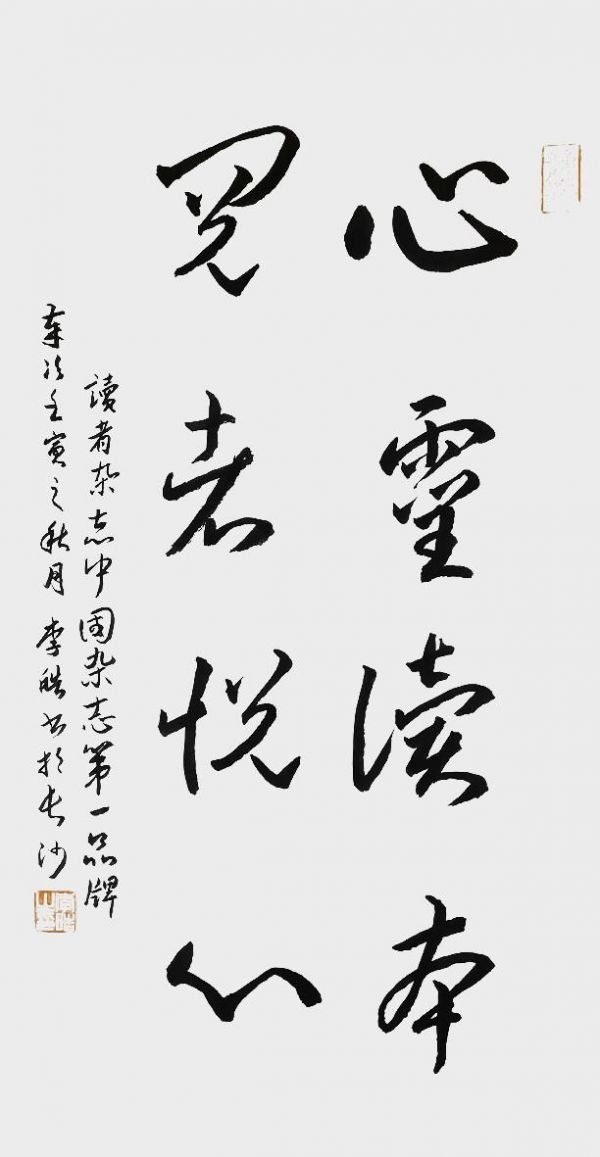 心靈讀本
閱者悦心
讀者杂志中國杂志第一品牌
歲次壬寅之秋月李皓书於长沙